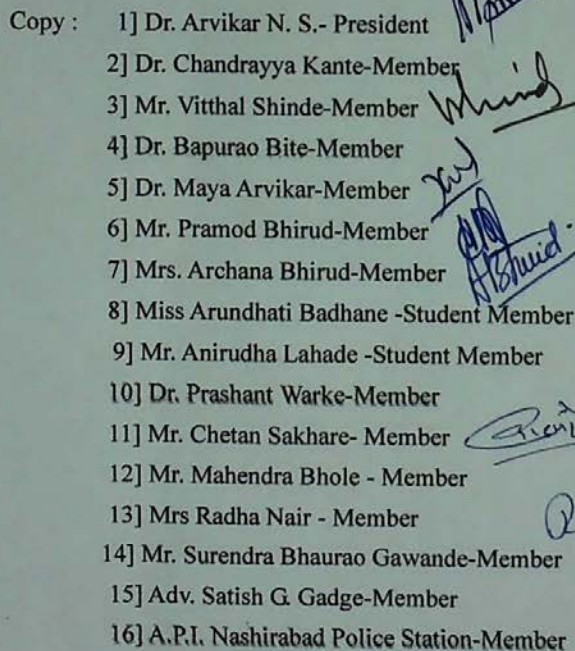 Copy : 1] Dr. Arvikar N. S.- President
2] Dr. Chandrayya Kante-Member
3] Mr. Vitthal Shinde-Member
4] Dr. Bapurao Bite-Member
5] Dr. Maya Arvikar-Member
6] Mr. Pramod Bhirud-Member
7] Mrs. Archana Bhirud-Member
8] Miss Arundhati Badhane -Student Member
9] Mr. Anirudha Lahade -Student Member
10] Dr. Prashant Warke-Member
11] Mr. Chetan Sakhare- Member
12] Mr. Mahendra Bhole - Member
13] Mrs Radha Nair - Member
14] Mr. Surendra Bhaurao Gawande-Member
15] Adv. Satish G. Gadge-Member
16] A.P.I. Nashirabad Police Station-Member